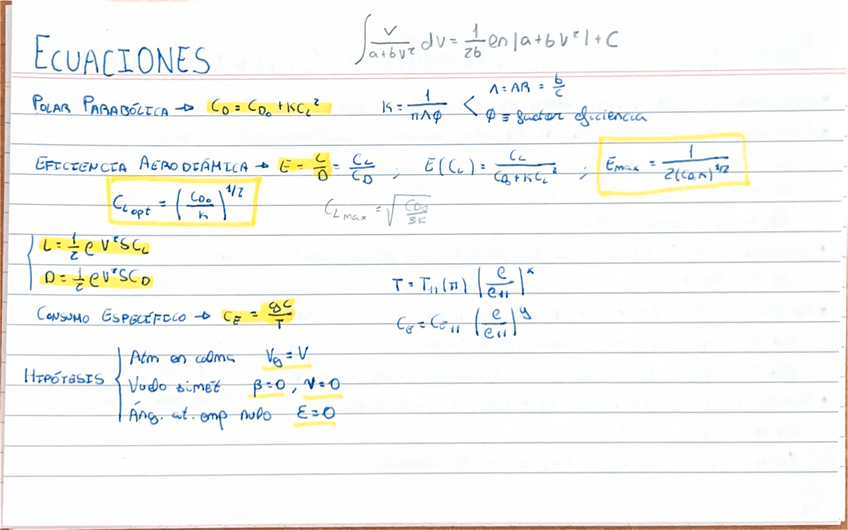 ECUACIONES
∫ V/(a+bV²) dV = 1/2b ln|a+bV²|+C
POLAR PARABÓLICA → C_D = C_D₀ + KC_L² K = 1/(πΛφ) < Λ = AR = b/c
φ ≡ factor eficiencia
EFICIENCIA AERODIÁMICA → E = L/D = C_L/C_D ; E(C_L) = C_L/(C_D₀+KC_L²) ; Emax = 1/(2(C_D₀K)^1/2)
C_L opt = (C_D₀/K)^1/2 C_L max = √(C_D₀/3K)
L = ½ ρV²SC_L
D = ½ ρV²SC_D
T = T₁₁(π) (ρ/ρ₁₁)^x
CONSUMO ESPECÍFICO → C_E = gC/T
C_E = C_E₁₁ (ρ/ρ₁₁)^y
HIPÓTESIS
Atm en calma Vg = V
Vuelo simet β=0, ν=0
Áng. at. emp nulo ε=0